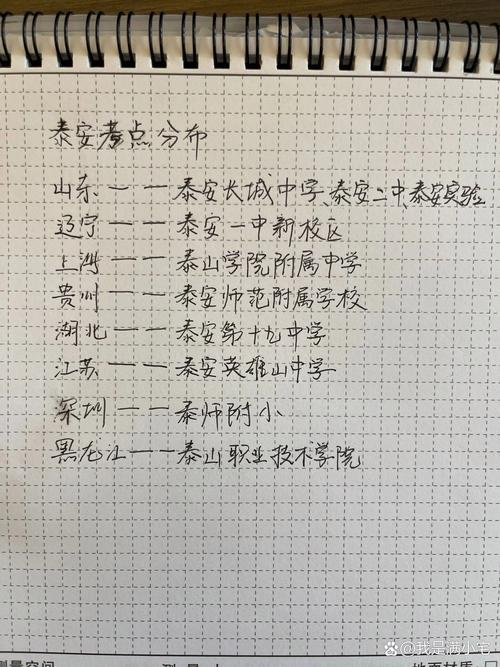 泰安考点分布
山东——泰安长城中学、泰安二中、泰安实验
辽宁——泰安一中新校区
上海——泰山学院附属中学
贵州——泰安师范附属学校
湖北——泰安第十九中学
江苏——泰安英雄山中学
深圳——泰师附小
黑龙江——泰山职业技术学院
测量空间
地面材质
@我是满小宅